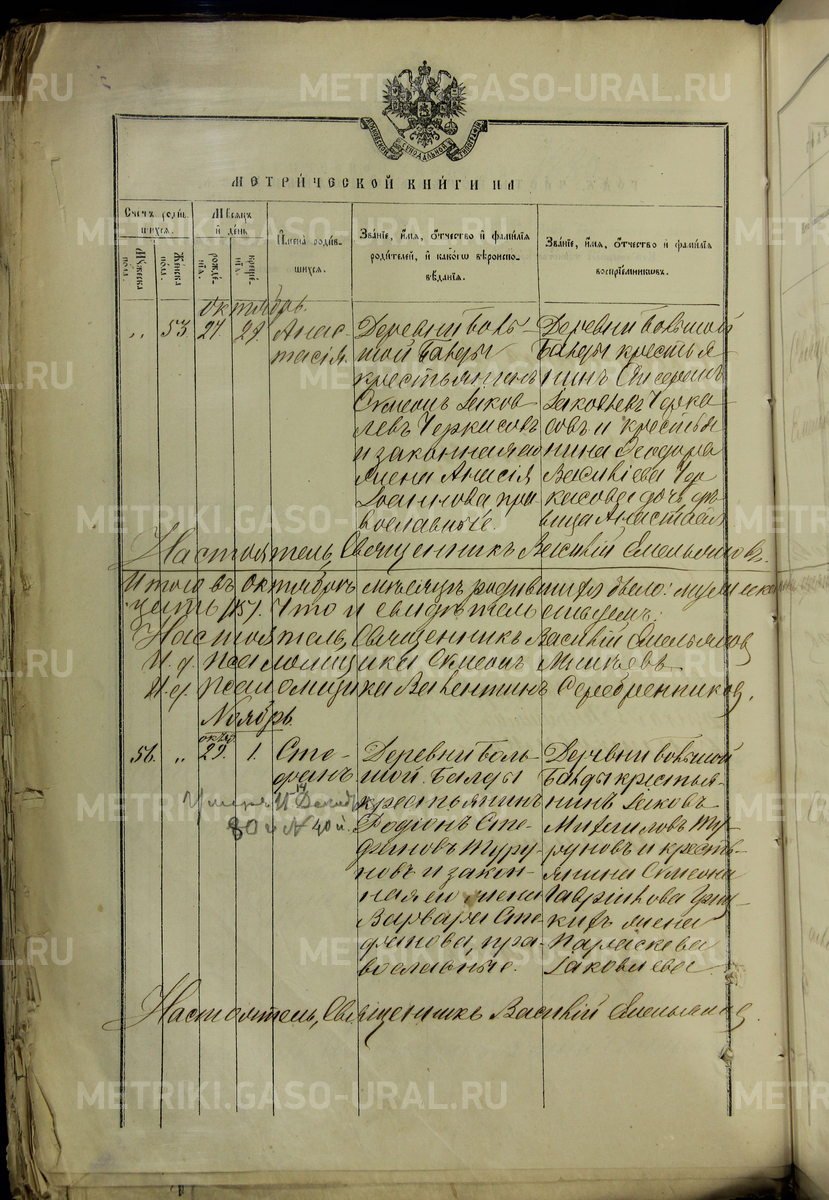 METRIKI.GASO-URAL.RU
МЕТРИ́ЧЕСКОЙ КНИ́ГИ НА
Счетъ роди́вшихся.
Мѣсяцъ и день
Имена роди́вшихся.
Зва́нїе, и́мя, о́тчество и фами́лїя родителей, и како́го вѣроисповѣ́данїя.
Зва́нїе, и́мя, о́тчество и фами́лїя воспрїе́мниковъ.
Мужеска пола.
Женска пола.
рожденїя.
креще́нїя.
октябрь
„ 53. 27. 29. Анастасія.
Деревни Большой Балды
крестьянинъ
Симеонъ Іаковлевъ Черкасовъ
и законная его
жена Анасія
Іоаннова, православные.
Деревни большой
Балды крестьянинъ
Іаковлевъ Черкасовъ и крестьянина
Ѳеодора
Васильева Черкасова дочь дѣвица Анастасія
Настоятель, Священникъ Василій Емельяновъ.
Итого въ октябрѣ мѣсяцѣ родившихся было:
Что и свидѣтельствуемъ:
Настоятель, Священникъ Василій Емельяновъ
И. д. псаломщика Симеонъ
И. д. псаломщика Валентинъ Серебренниковъ.
Ноябрь
октяб.
56. „ 29. 1. Стефанъ
Умеръ 15 Декабр
80 и № 40 й.
Деревни Большой Балды
крестьянинъ
Родіонъ Стефановъ Туруновъ и законная его жена
Варвара Стефанова, православные.
Деревни большой
Балды крестьянинъ Іаковъ
Михаиловъ Туруновъ и крестьянина Симеона
Гавріилова
жена
Параскева
Іаковлева
Настоятель, Священникъ Василій Емельяновъ.